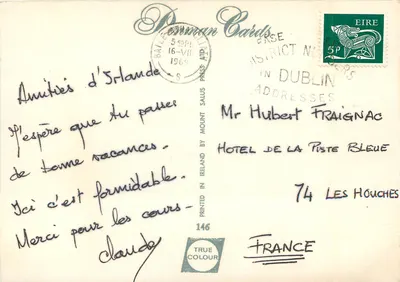 Penman Cards
EIRE
5P
16-VII
DISTRICT NUMBERS
IN DUBLIN
ADDRESSES
Amitiés d'Irlande
J'espère que tu passes
de bonne vacances.
Ici c'est formidable.
Merci pour les cours-
Claude
PRINTED IN IRELAND BY MOUNT SALUS PRESS LTD
146
TRUE
COLOUR
Mr Hubert FRAIGNAC
HOTEL DE LA PISTE BLEUE
74 LES HOUCHES
FRANCE